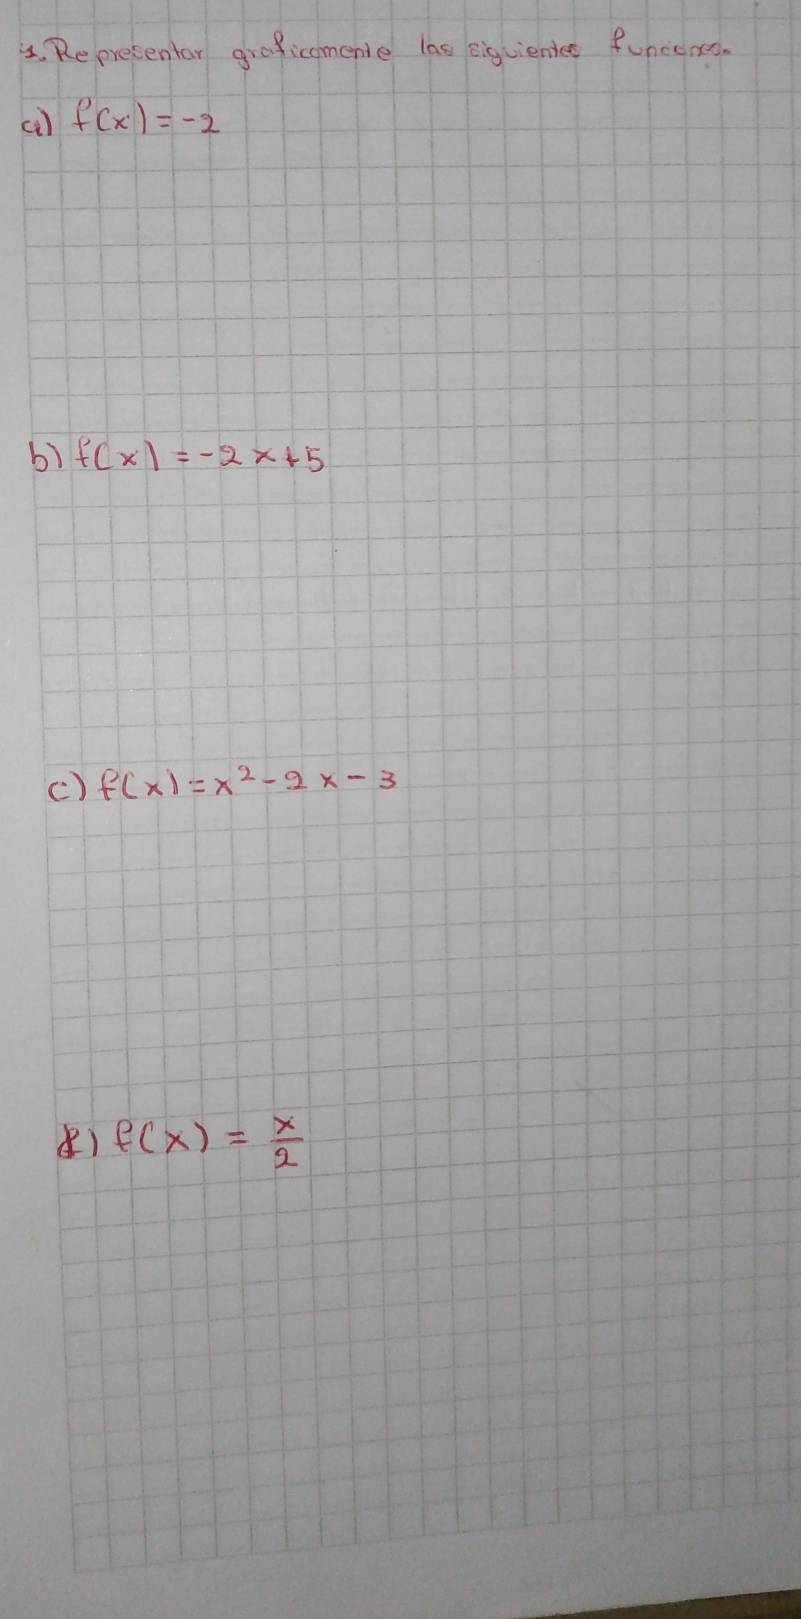 1. Representar graficamente las siguientes funciones.
a) f(x) = -2
b) f(x) = -2x+5
c) f(x) = x² - 2x - 3
d) f(x) = x/2